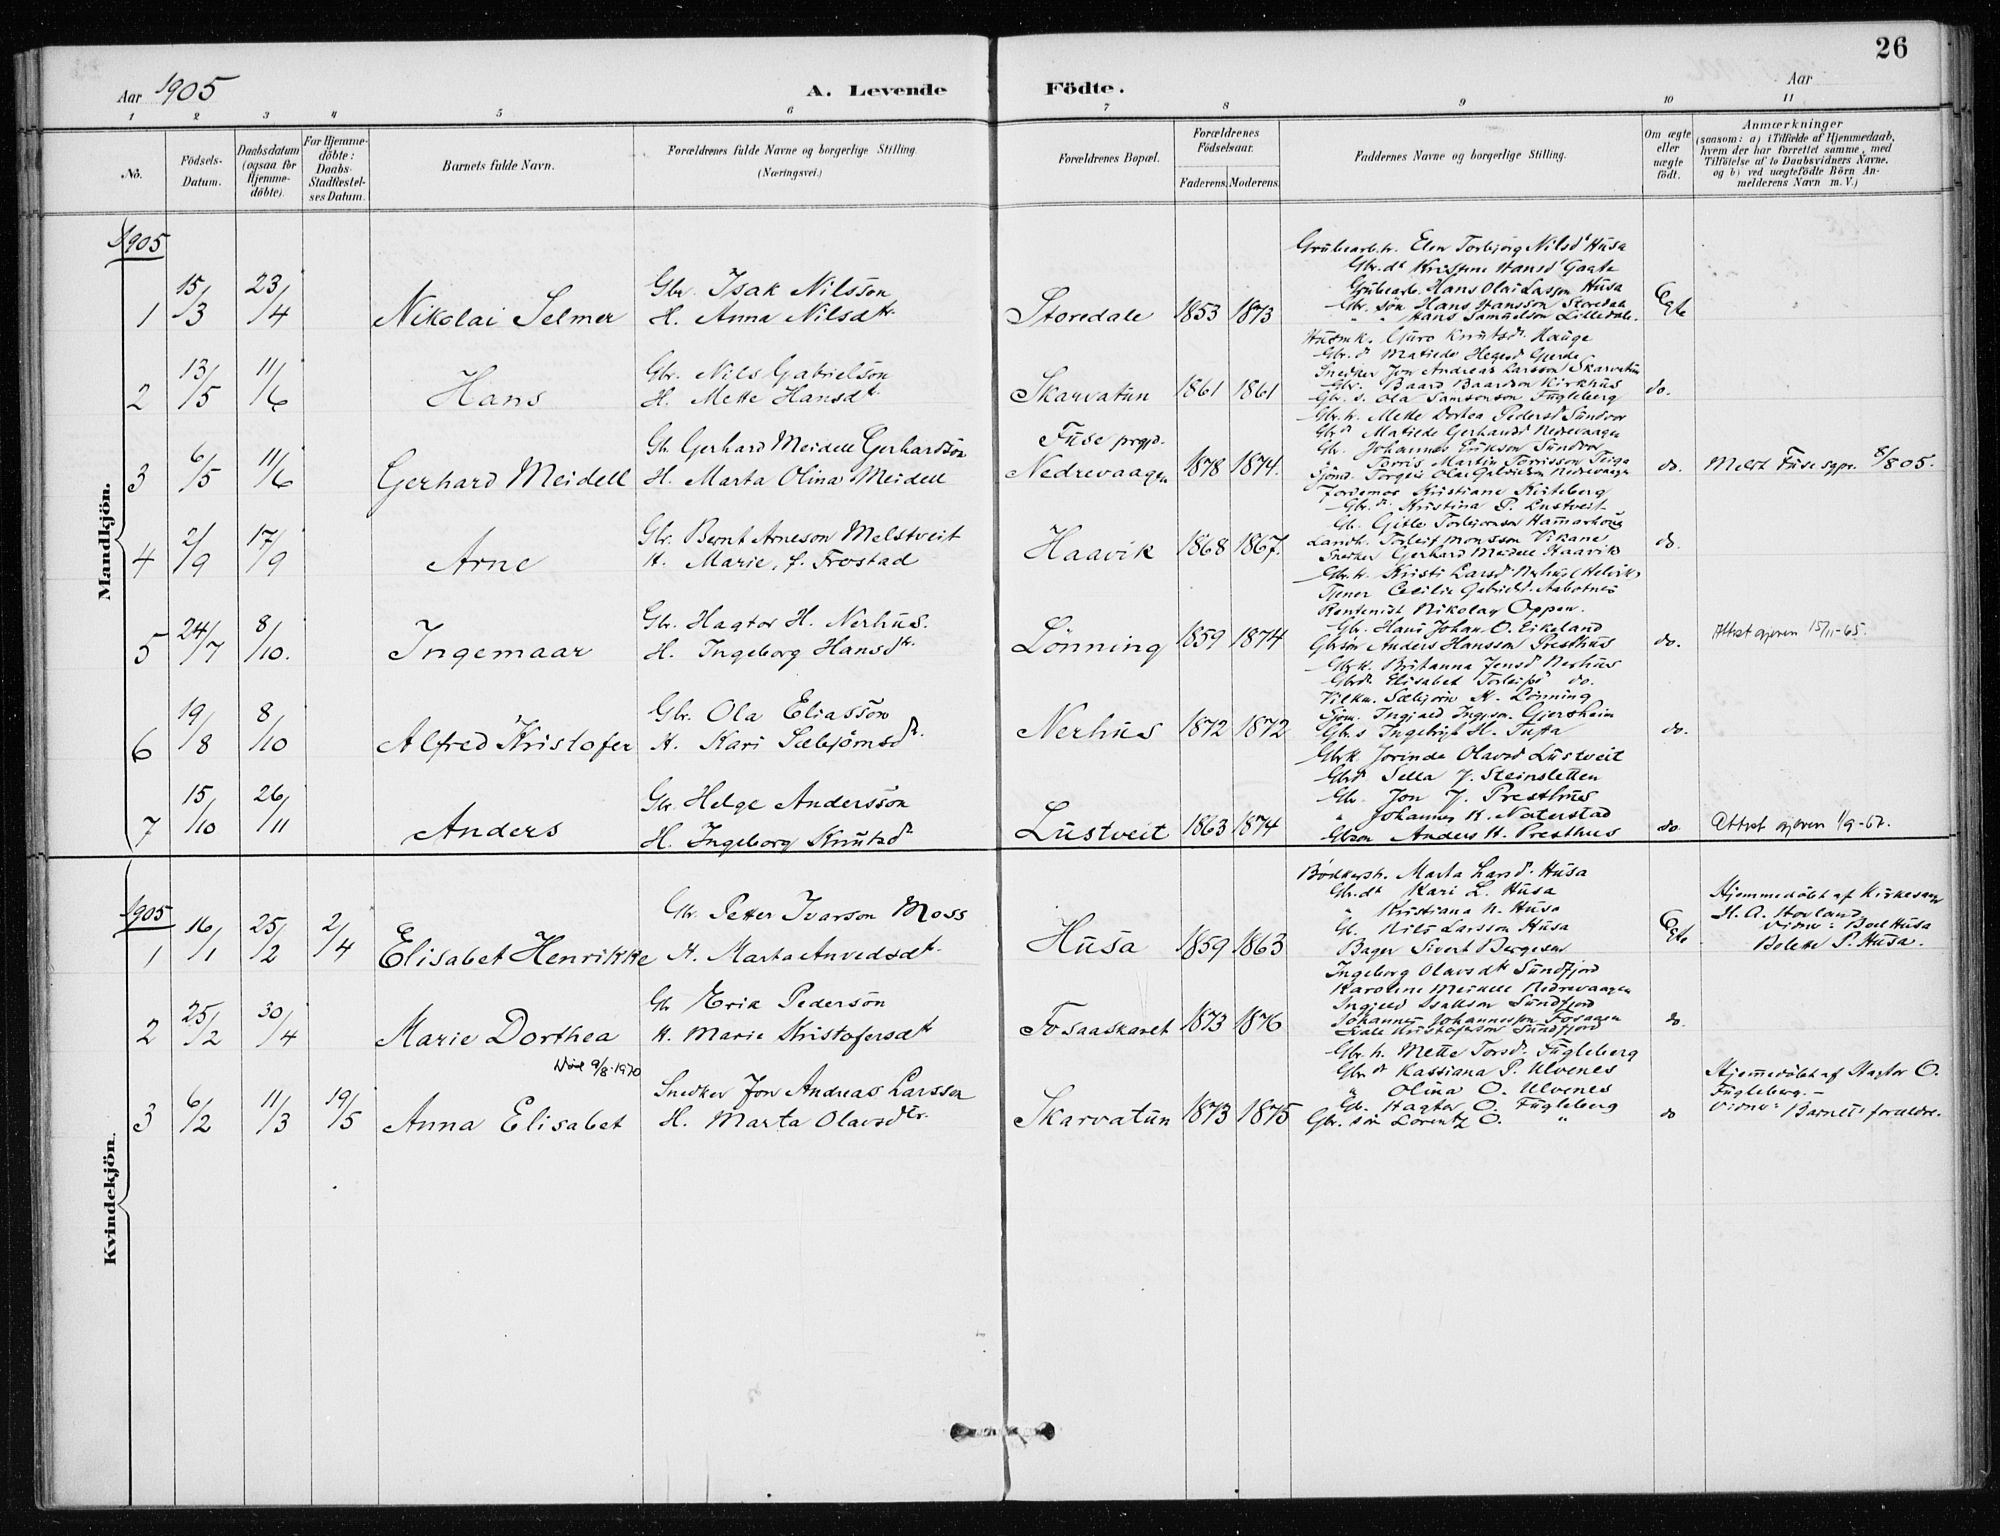 26
Aar 1905
A. Levende Födte.
Aar
1 2 3 4 5 6 7 8 9 10 11
No.
Födsels-Datum.
Daabsdatum (ogsaa for Hjemme-döbte).
For Hjemme-döbte: Daabs-Stadfæstel-ses Datum.
Barnets fulde Navn.
Forældrenes fulde Navne og borgerlige Stilling.
(Næringsvei.)
Forældrenes Bopæl.
Forældrenes Födselsaar.
Faderens. Moderens.
Faddernes Navne og borgerlige Stilling.
Om ægte eller uægte födt.
Anmærkninger
(saasom: a) i Tilfælde af Hjemmedaab, hvem der har forrettet samme, med Tilföielse af to Daabsvidners Navne, og b) ved uægtefödte Börn An-melderens Navn m. V.)
Mandkjön.
1905
1 15/3 23/4 Nikolai Selmer
Gbr. Isak Nilsson
H. Anna Nilsdtr.
Storedale 1853 1873
Grubearb. h. Elen Torbjörg Nilsdt Husa
Gbr. dt Kristine Hansdt Gaate
Grubearb. Hans Olai Larsson Husa
Gbr. sön Hans Hansson Storedale
" " Hans Samuelson Lilledale.
Ægte
2 13/5 11/6 Hans
Gbr. Nils Gabrielson
H. Mette Hansdtr.
Skarvatun 1861 1861
Husmk. Guro Knutsdr. Hauge
Gbr. d Matilde Helgesd Gjerde
Snedker Jon Andreas Larsson Skarvatun
Gbr. Baard Baardson Kirkhus
Gbr. s. Ola Samsonson Fugleberg
do.
3 6/5 11/6 Gerhard Meidell
Gb. Gerhard Meidell Gerhardsön
H. Marta Olina Meidell
Fuse prgjd.
Nedrevaagen 1878 1874.
Gbr. h. Mette Dortea Pedersd Sundvor
Gbr d Matilde Gerhardsd Nedrevaagen
Gb. Johannes Erikson Sundvor
" Torris Martin Torrisson Teige
Sjömd. Torgeis Olai Gabrielson Nedrevaagen
do. Meldt Fuse sgpr. 8/8 05.
4 2/9 17/9 Arne
Gbr. Bernt Arneson Melstveit
H. Marie, f. Frostad
Haavik 1868 1867.
Jordemor Kristiane Kirteberg
Gbr. d. Kristina P. Lustveit
Gb. Gitle Torbjornsen Hammarhaug
Landh. Torleif Monsson Vikane
Snedker Gerhard Meidell Haavik
do.
5 24/7 8/10. Ingemaar
Gbr. Hagtor H. Nerhus.
H. Ingeborg Hansdtr.
Lönning 1859 1874
Gbr. h. Kristi Larsd. Nerhus
Tjener Cecilie Gabrielsd. Aabotnes
Rentenist Nikolay Oppen.
Gbr. Hans Johan O. Eikeland
Gbrsön Anders Hansson Presthus
do. Attest gjeven 15/11-65.
6 19/8 8/10 Alfred Kristofer
Gbr. Ola Eliassön
H. Kari Sæbjörnsdr.
Nerhus 1872 1872
Gbr k. Britanna Jensd Nerhus
Gbrdr. Elisabet Torleifsd do.
Vilkm. Sæbjörn K. Lönning
Sjöm. Ingjald Ingjson. Gjersheim
Gbr. s Ingebrigt H. Tufta
do.
7 15/10 26/11 Anders
Gbr. Helge Andersson
H. Ingeborg Knutsdr
Lustveit 1863 1874
Gbr k. Jorinde Olavsd Lustveit
Gbrd Sella J. Steinsletten
Gbr. Jon J. Presthus
" Johannes K. Naterstad
Gbrson Anders H. Presthus
do Attest gjeven 1/9-67.
Kvindekjön.
1905
1 16/1 25/2 2/4 Elisabet Henrikke
Gbr. Petter Ivarson Moss
H. Marta Anvedsdt.
Husa 1859 1863
Bödkersh. Marta Larsd. Husa
Gbr. dt Kari L. Husa
" Kristiana N. Husa
Gb. Nils Larsson Husa
Bager Sivert Bergesen
Ægte
Hjemmedöbt af Kirkesang
H. A. Hovland
Vidner: Boel Husa
Bolette P. Husa.
2 25/2 30/4 Marie Dorthea
Gbr Erik Pedersön
H. Marie Kristofersdt
Fosaaskaret 1873 1876
Ingeborg Olavsdtr Sundfjord
Karoline Meidell Nedrevaagen
Ingjeld Isakson Sundfjord
Johannes Johannesson Fosaaen
Kristoferson Sundfjord
do.
Död 9/8-1970
3 6/2 11/3 19/5 Anna Elisabet
Snedker Jon Andreas Larsson
H. Marta Olavsdtr.
Skarvatun 1873 1875
Gbr. h. Mette Torsd. Fugleberg
Gbr d Kassiana P. Ulvenes
" Olina O. Ulvenes
Gb. Hagtor O. Fugleberg
Gbr. sön Lorentz O. "
do
Hjemmedöbt af Hagtor O.
Fugleberg. –
Vidner: Barnets forældre.